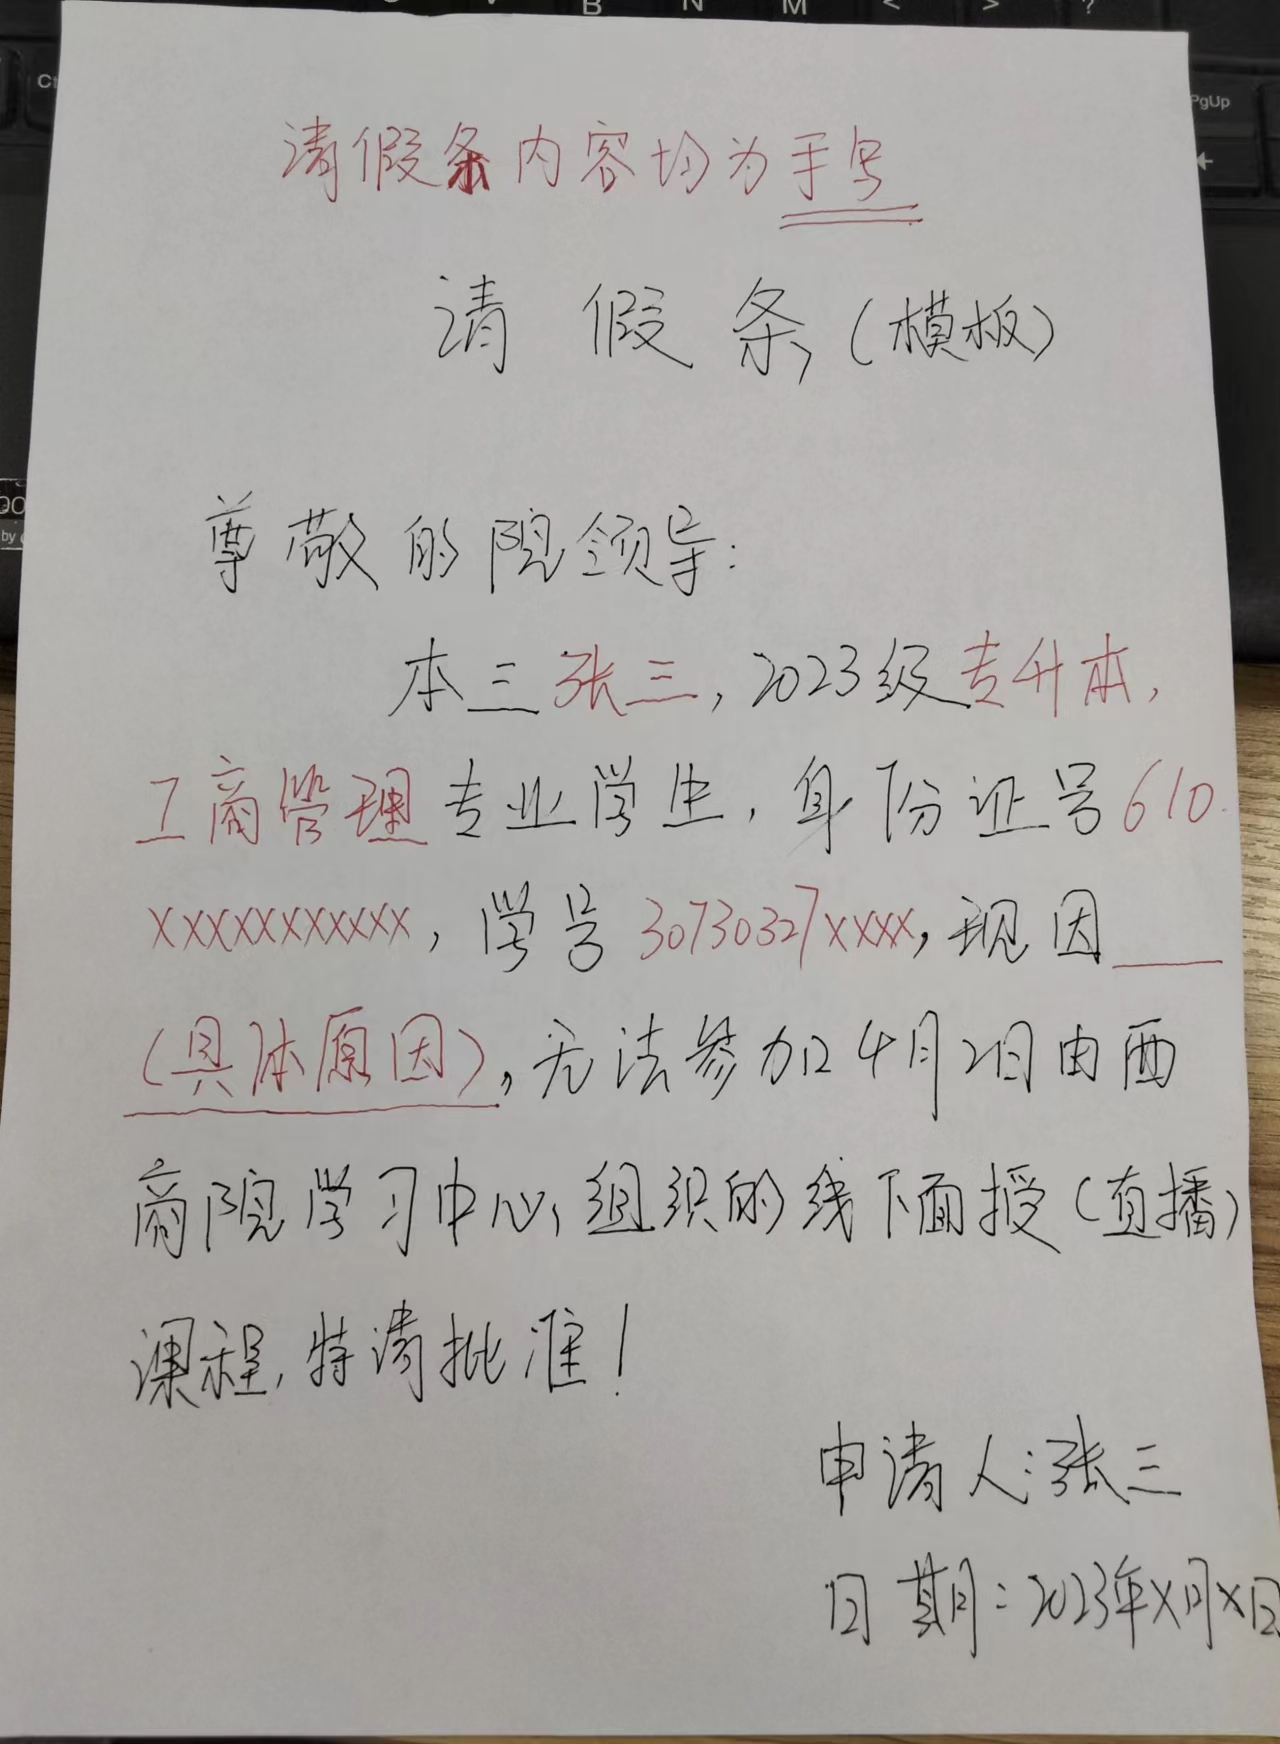 B N M < > ?
PgUp
请假条内容均为手写
请 假 条(模板)
尊敬的院领导:
本三张三,2023级专升本,
工商管理专业学生,身份证号610
xxxxxxxxxxx,学号30730327xxxx,现因
(具体原因),无法参加4月2日由西
商院学习中心组织的线下面授(直播)
课程,特请批准!
申请人:张三
日期:2023年X月X日